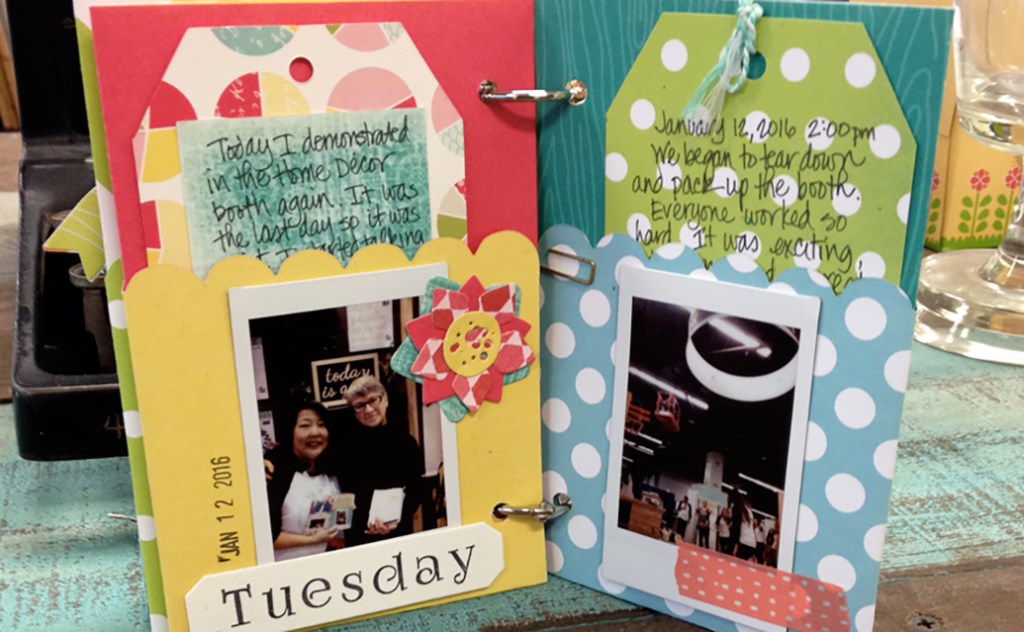 Today I demonstrated
in the Home Décor
booth again. It was
the last day so it was
January 12, 2016 2:00pm
We began to tear down
and pack up the booth.
Everyone worked so
hard. It was exciting
today
is a
JAN 12 2016
Tuesday